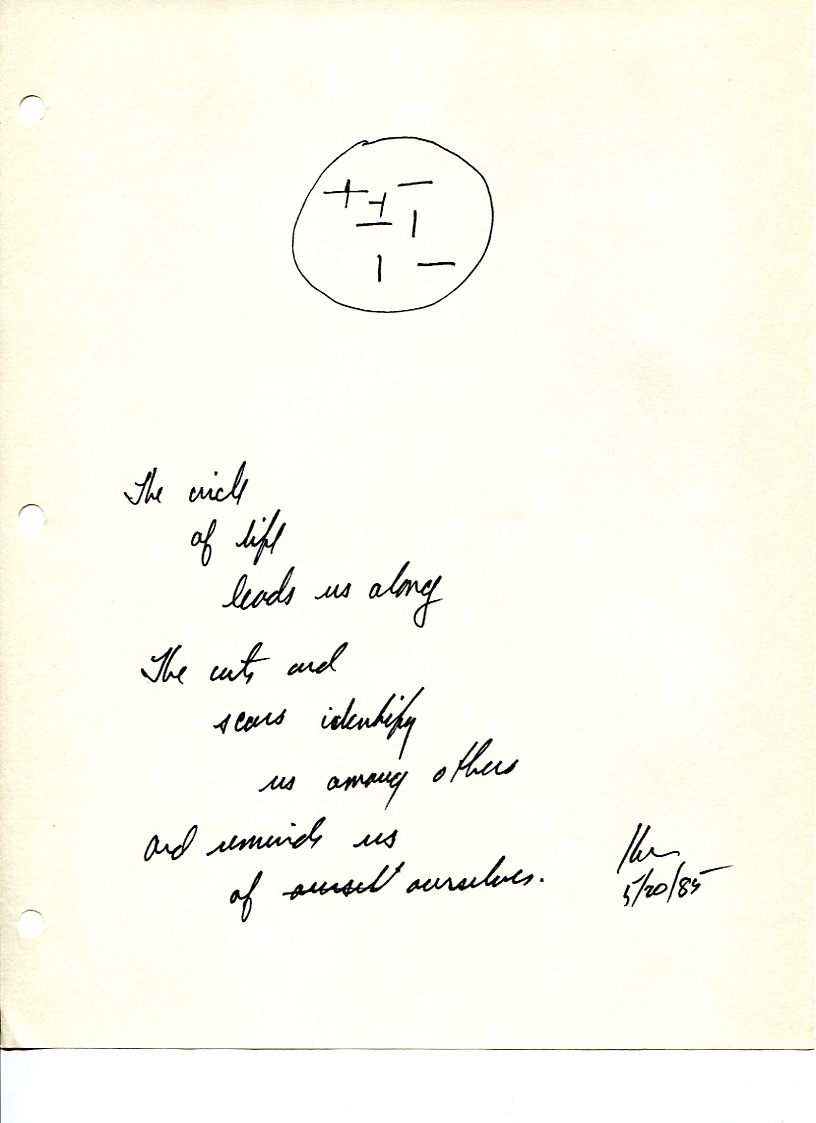 The circle
of life
leads us along
The cuts and
scars identify
us among others
and reminds us
of ourself ourselves.
5/20/85